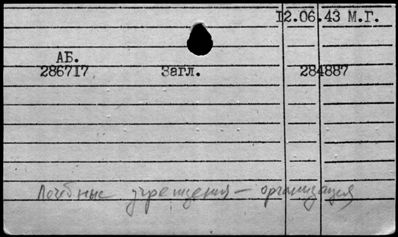 12.06.43 М.Г.
АБ.
286717 Загл. 284887
Лечебные учреждения - организация